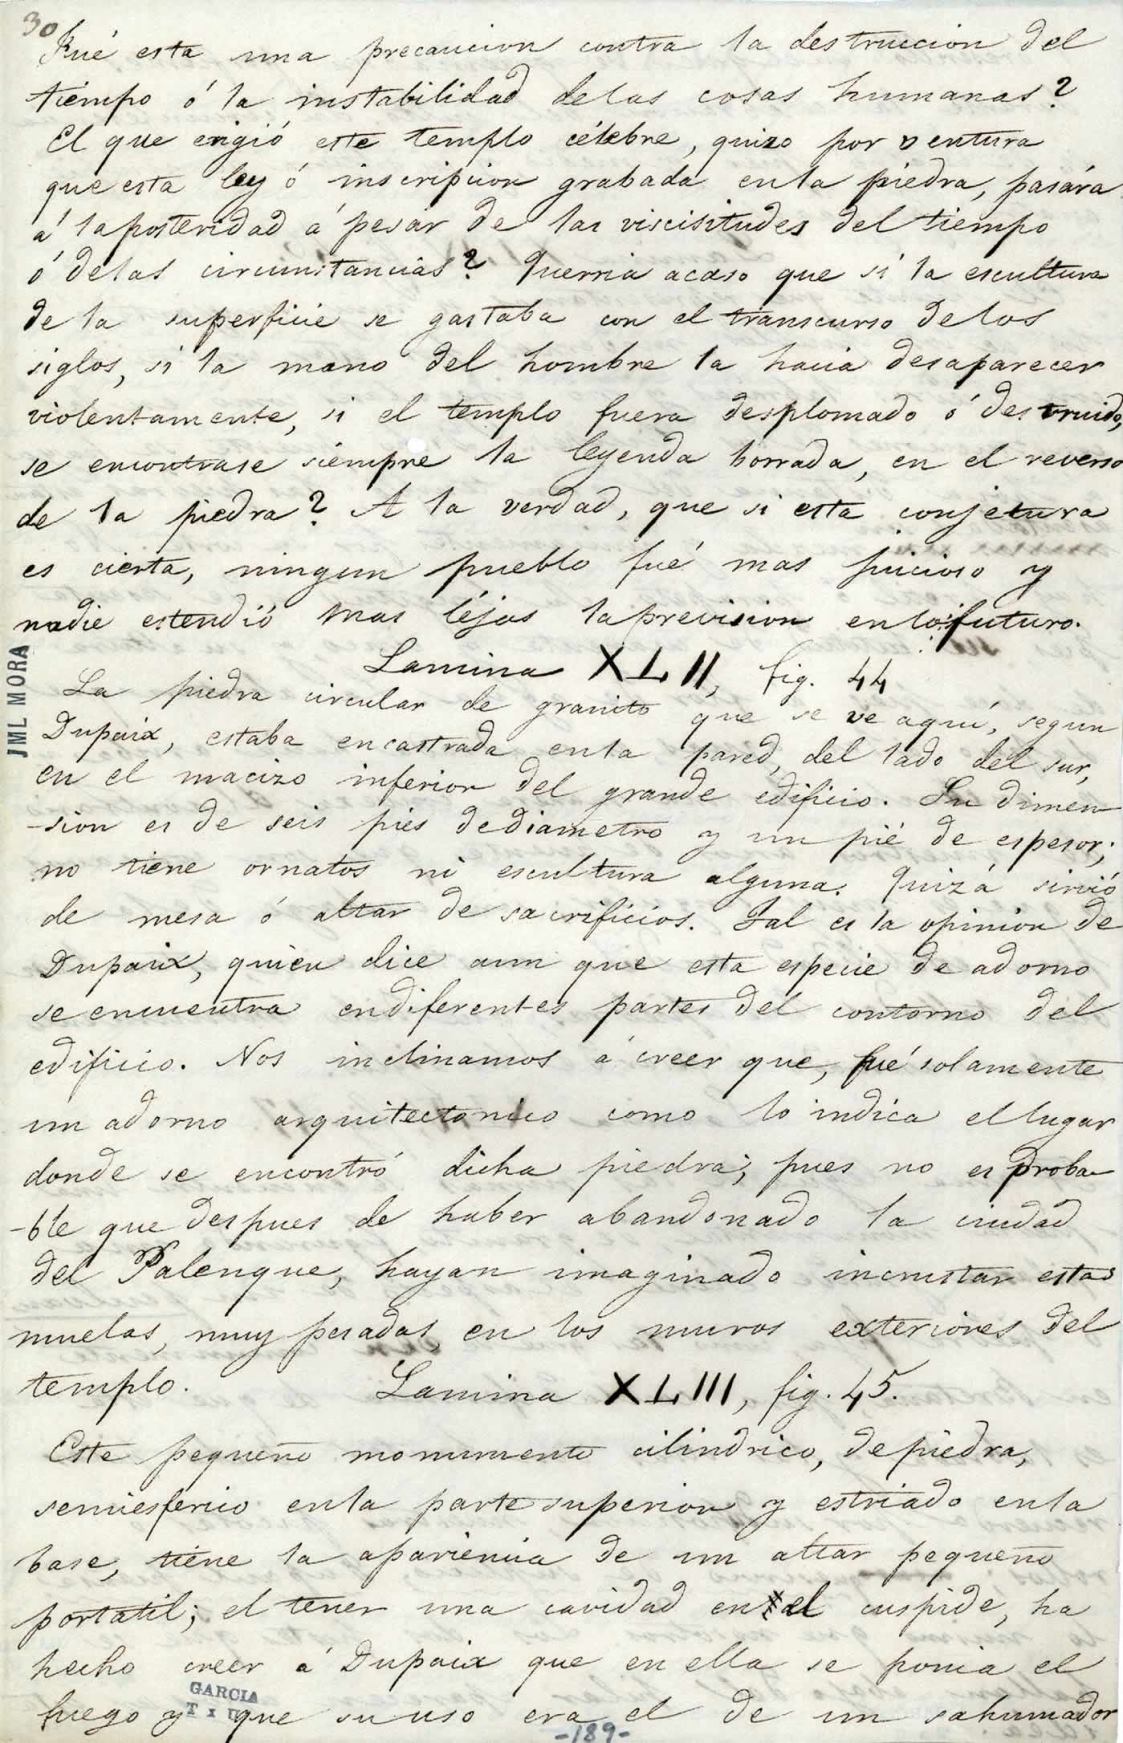 30
Fué esta una precaucion contra la destruccion del
tiempo ó la instabilidad de las cosas humanas?
El que erigió este templo célebre, quizo por ventura
que esta ley ó inscripcion grabada en la piedra, pasára
á la posteridad á pesar de las viscisitudes del tiempo
ó de las circunstancias? Querria acaso que si la escultura
de la superficie se gastaba con el transcurso de los
siglos, si la mano del hombre la hacia desaparecer
violentamente, si el templo fuera desplomado ó destruido,
se encontrase siempre la leyenda borrada, en el reverso
de la piedra? A la verdad, que si esta conjetura
es cierta, ningun pueblo fué mas juicioso y
nadie estendió mas léjos la prevision en lo futuro.
Lamina XLII, fig. 44
La piedra circular de granito que se ve aquí, segun
Dupaix, estaba encastrada en la pared, del lado del sur,
en el macizo inferior del grande edificio. Su dimen
-sion es de seis piés de diametro y un pié de espesor;
no tiene ornatos ni escultura alguna. Quizá sirvió
de mesa ó altar de sacrificios. Tal es la opinion de
Dupaix, quien dice aun que esta especie de adorno
se encuentra en diferentes partes del contorno del
edificio. Nos inclinamos á creer que, fué solamente
un adorno arquitectonico como lo indica el lugar
donde se encontró dicha piedra; pues no es proba
-ble que despues de haber abandonado la ciudad
del Palenque, hayan imaginado incrustar estas
muelas, muy pesadas, en los muros exteriores del
templo.
Lamina XLIII, fig. 45.
Este pequeño monumento cilindrico, de piedra,
semiesferico en la parte superior y estriado en la
base, tiene la apariencia de un altar pequeño
portatil; el tener una cavidad en el cuspide, ha
hecho creer á Dupaix que en ella se ponia el
fuego y que su uso era el de un sahumador
JML MORA
GARCIA
-189-